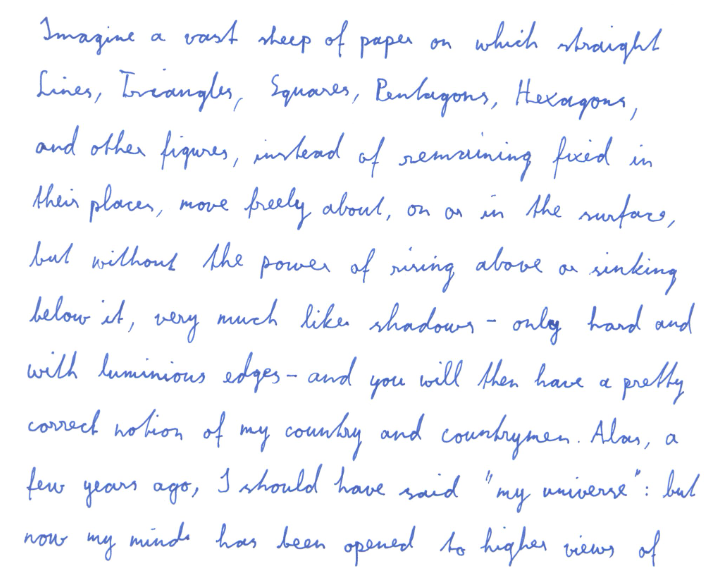 Imagine a vast sheep of paper on which straight
Lines, Triangles, Squares, Pentagons, Hexagons,
and other figures, instead of remaining fixed in
their places, move freely about, on or in the surface,
but without the power of rising above or sinking
below it, very much like shadows - only hard and
with luminious edges - and you will then have a pretty
correct notion of my country and countrymen. Alas, a
few years ago, I should have said "my universe": but
now my mind has been opened to higher views of